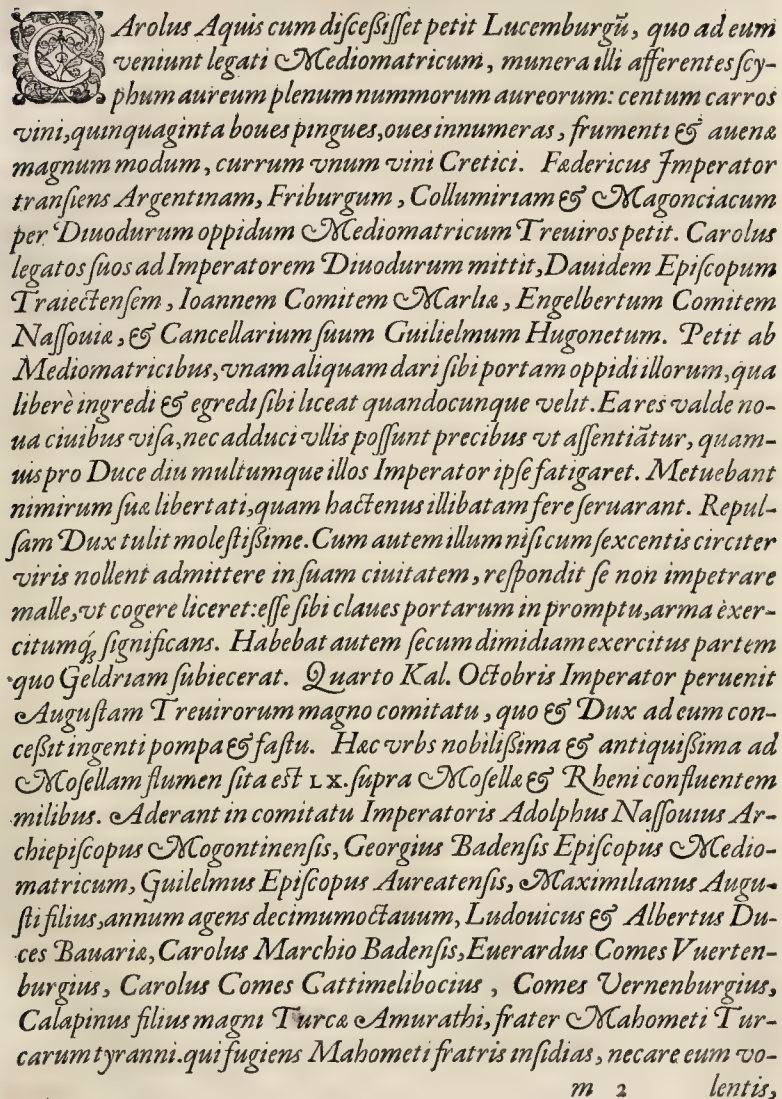 CArolus Aquis cum diſceſsiſſet petit Lucemburgũ, quo ad eum
veniunt legati Mediomatricum, munera illi afferentes ſcy-
phum aureum plenum nummorum aureorum: centum carros
vini, quinquaginta boues pingues, oues innumeras, frumenti & auenæ
magnum modum, currum vnum vini Cretici. Fædericus Imperator
tranſiens Argentinam, Friburgum, Collumiriam & Magonciacum
per Diuodurum oppidum Mediomatricum Treuiros petit. Carolus
legatos ſuos ad Imperatorem Diuodurum mittit, Dauidem Epiſcopum
Traiectenſem, Ioannem Comitem Marliæ, Engelbertum Comitem
Naſſouiæ, & Cancellarium ſuum Guilielmum Hugonetum. Petit ab
Mediomatricibus, vnam aliquam dari ſibi portam oppidi illorum, qua
liberè ingredi & egredi ſibi liceat quandocunque velit. Ea res valde no-
ua ciuibus viſa, nec adduci vllis poſſunt precibus vt aſſentiãtur, quam-
uis pro Duce diu multumque illos Imperator ipſe fatigaret. Metuebant
nimirum ſuæ libertati, quam hactenus illibatam fere ſeruarant. Repul-
ſam Dux tulit moleſtiſsime. Cum autem illum niſi cum ſexcentis circiter
viris nollent admittere in ſuam ciuitatem, reſpondit ſe non impetrare
malle, vt cogere liceret: eſſe ſibi claues portarum in promptu, arma exer-
citumq́; ſignificans. Habebat autem ſecum dimidiam exercitus partem
quo Geldriam ſubiecerat. Quarto Kal. Octobris Imperator peruenit
Auguſtam Treuirorum magno comitatu, quo & Dux ad eum con-
ceſsit ingenti pompa & faſtu. Hæc vrbs nobiliſsima & antiquiſsima ad
Moſellam flumen ſita eſt LX. ſupra Moſellæ & Rheni confluentem
milibus. Aderant in comitatu Imperatoris Adolphus Naſſouius Ar-
chiepiſcopus Mogontinenſis, Georgius Badenſis Epiſcopus Medio-
matricum, Guilelmus Epiſcopus Aureatenſis, Maximilianus Augu-
ſti filius, annum agens decimumoctauum, Ludouicus & Albertus Du-
ces Bauariæ, Carolus Marchio Badenſis, Euerardus Comes Vuerten-
burgius, Carolus Comes Cattimelibocius, Comes Vernenburgius,
Calapinus filius magni Turcæ Amurathi, frater Mahometi Tur-
carum tyranni. qui fugiens Mahometi fratris inſidias, necare eum vo-
m 2 lentis,